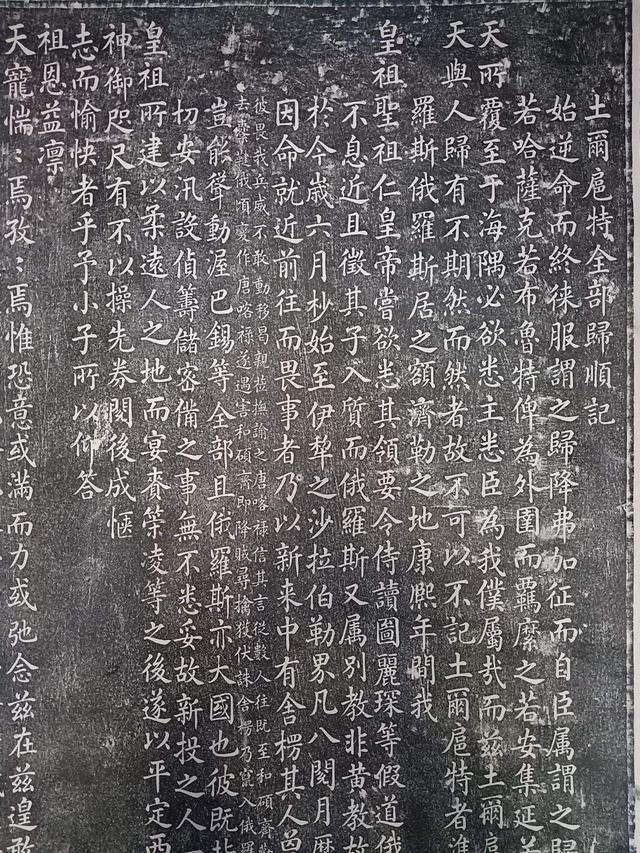 土爾扈特全部歸順記
始逆命而終徠服謂之歸降弗加征而自臣属謂之歸
若哈薩克若布魯特俾為外圉而羈縻之若安集延
天所覆至于海隅必欲悉主悉臣為我僕屬哉而茲土爾扈
天與人歸有不期然而然者故不可以不記土爾扈特者準
羅斯俄羅斯居之額濟勒之地康熙年間我
皇祖聖祖仁皇帝嘗欲悉其領要令侍讀圖麗琛等假道俄
不息近且徵其子入質而俄羅斯又属別教非黄教故
於今歲六月杪始至伊犁之沙拉伯勒界凡八閱月歷
因命就近前往而畏事者乃以新来中有舍楞其人
彼畏我兵威不敢動移曷親指撫諭之唐喀禄信其言從數人往既至和碩齊
去唐喀禄遂遇害和碩齊即降賊尋擒獲伏誅舍楞乃竄入俄羅
豈能聳動渥巴錫等全部且俄羅斯亦大國也彼既
切安汛設偵籌儲密備之事無不悉妥故新投之人
皇祖所建以柔遠人之地而宴賚䇿凌等之後遂以平定西
神御咫尺有不以操先券閱後成愜
志而愉快者乎予小子所以仰答
祖恩益凜
天寵惴〻焉孜〻焉惟恐意或滿而力或弛念兹在兹遑敢